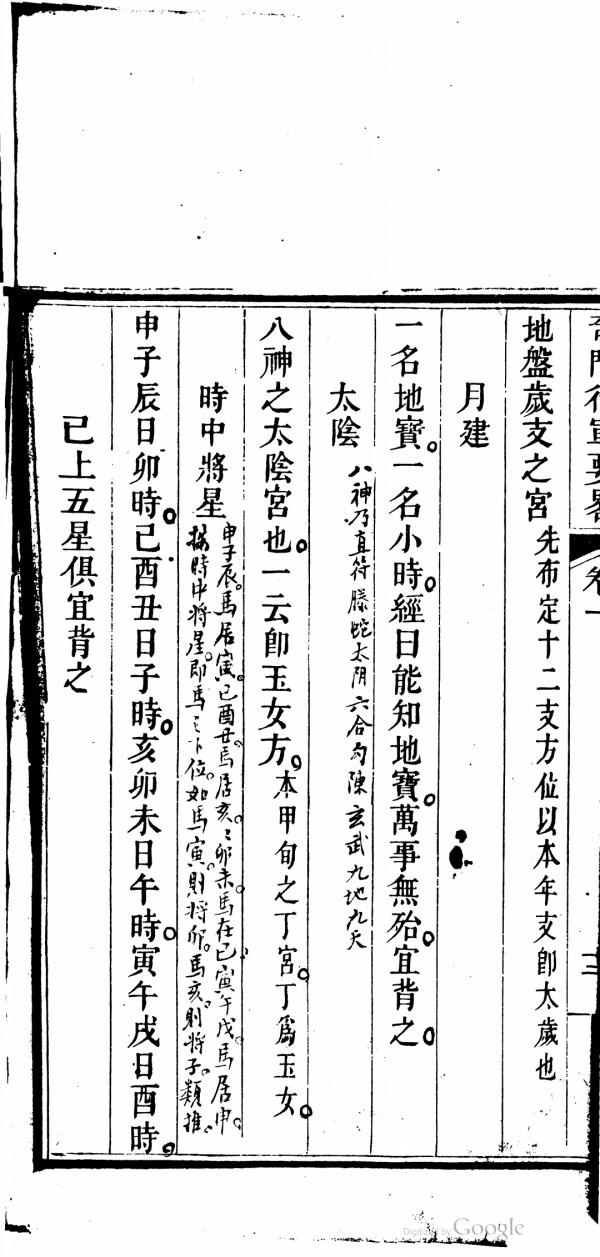 奇門行軍要畧 卷一 十二
地盤歲支之宮 先布定十二支方位以本年支卽太歲也
月建
一名地寶。一名小時。經曰能知地寶。萬事無殆。宜背之。
太陰 八神乃直符螣蛇太阴六合勾陳玄武九地九天
八神之太陰宮也。一云卽玉女方。本甲旬之丁宮。丁爲玉女。
時中將星 申子辰。馬居寅。巳酉丑馬居亥。亥卯未馬在巳。寅午戌。馬居申。
按時中將星。即馬之下位。如馬寅。則將卯。馬亥。則將子。類推。
申子辰日卯時。巳酉丑日子時。亥卯未日午時。寅午戌日酉時。
已上五星俱宜背之
Digitized by Google